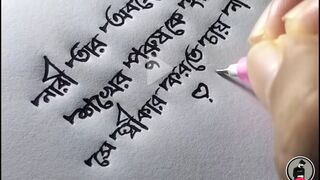 নারী তার অবাধ্য
শখের পুরুষকে
সে স্বীকার করতে চায় না